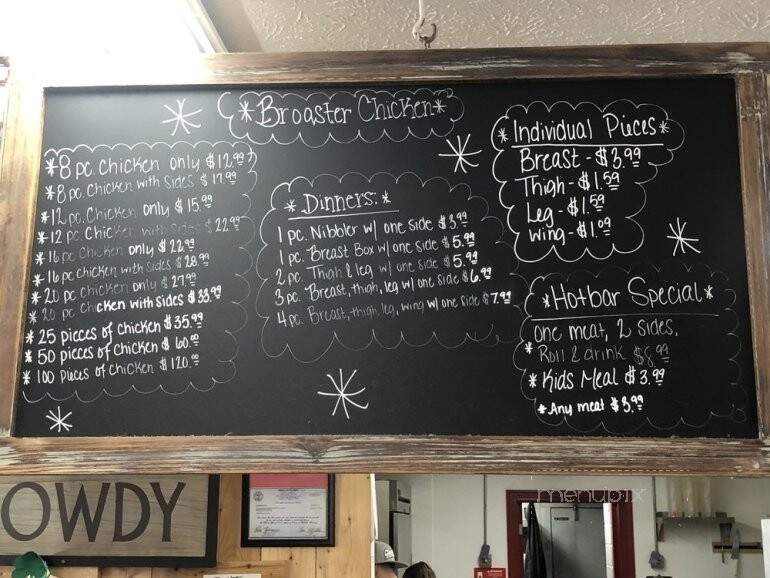 *Broaster Chicken*
*8 pc. chicken only $12.99
*8 pc. chicken with Sides $17.99
*12 pc. Chicken only $15.99
*12 pc. Chicken with Sides $22.99
*16 pc Chicken only $22.99
*16 pc chicken with sides $28.99
*20 pc chicken only $27.99
*20 pc chicken with sides $33.99
*25 pieces of chicken $35.99
*50 pieces of chicken $60.00
*100 pieces of chicken $120.00
*Dinners:*
1 pc. Nibbler w/ one side $3.99
1 pc. Breast Box w/ one side $5.99
2 pc Thigh & leg w/ one side $5.99
3 pc. Breast, thigh, leg w/ one side $6.99
4 pc. Breast, thigh, leg, wing w/ one side $7.99
*Individual Pieces*
Breast - $3.99
Thigh - $1.59
Leg - $1.59
Wing - $1.09
*Hotbar Special*
one meat, 2 sides,
*Roll & drink $8.99
*Kids Meal $3.99
*Any meat $3.99
OWDY
menupix